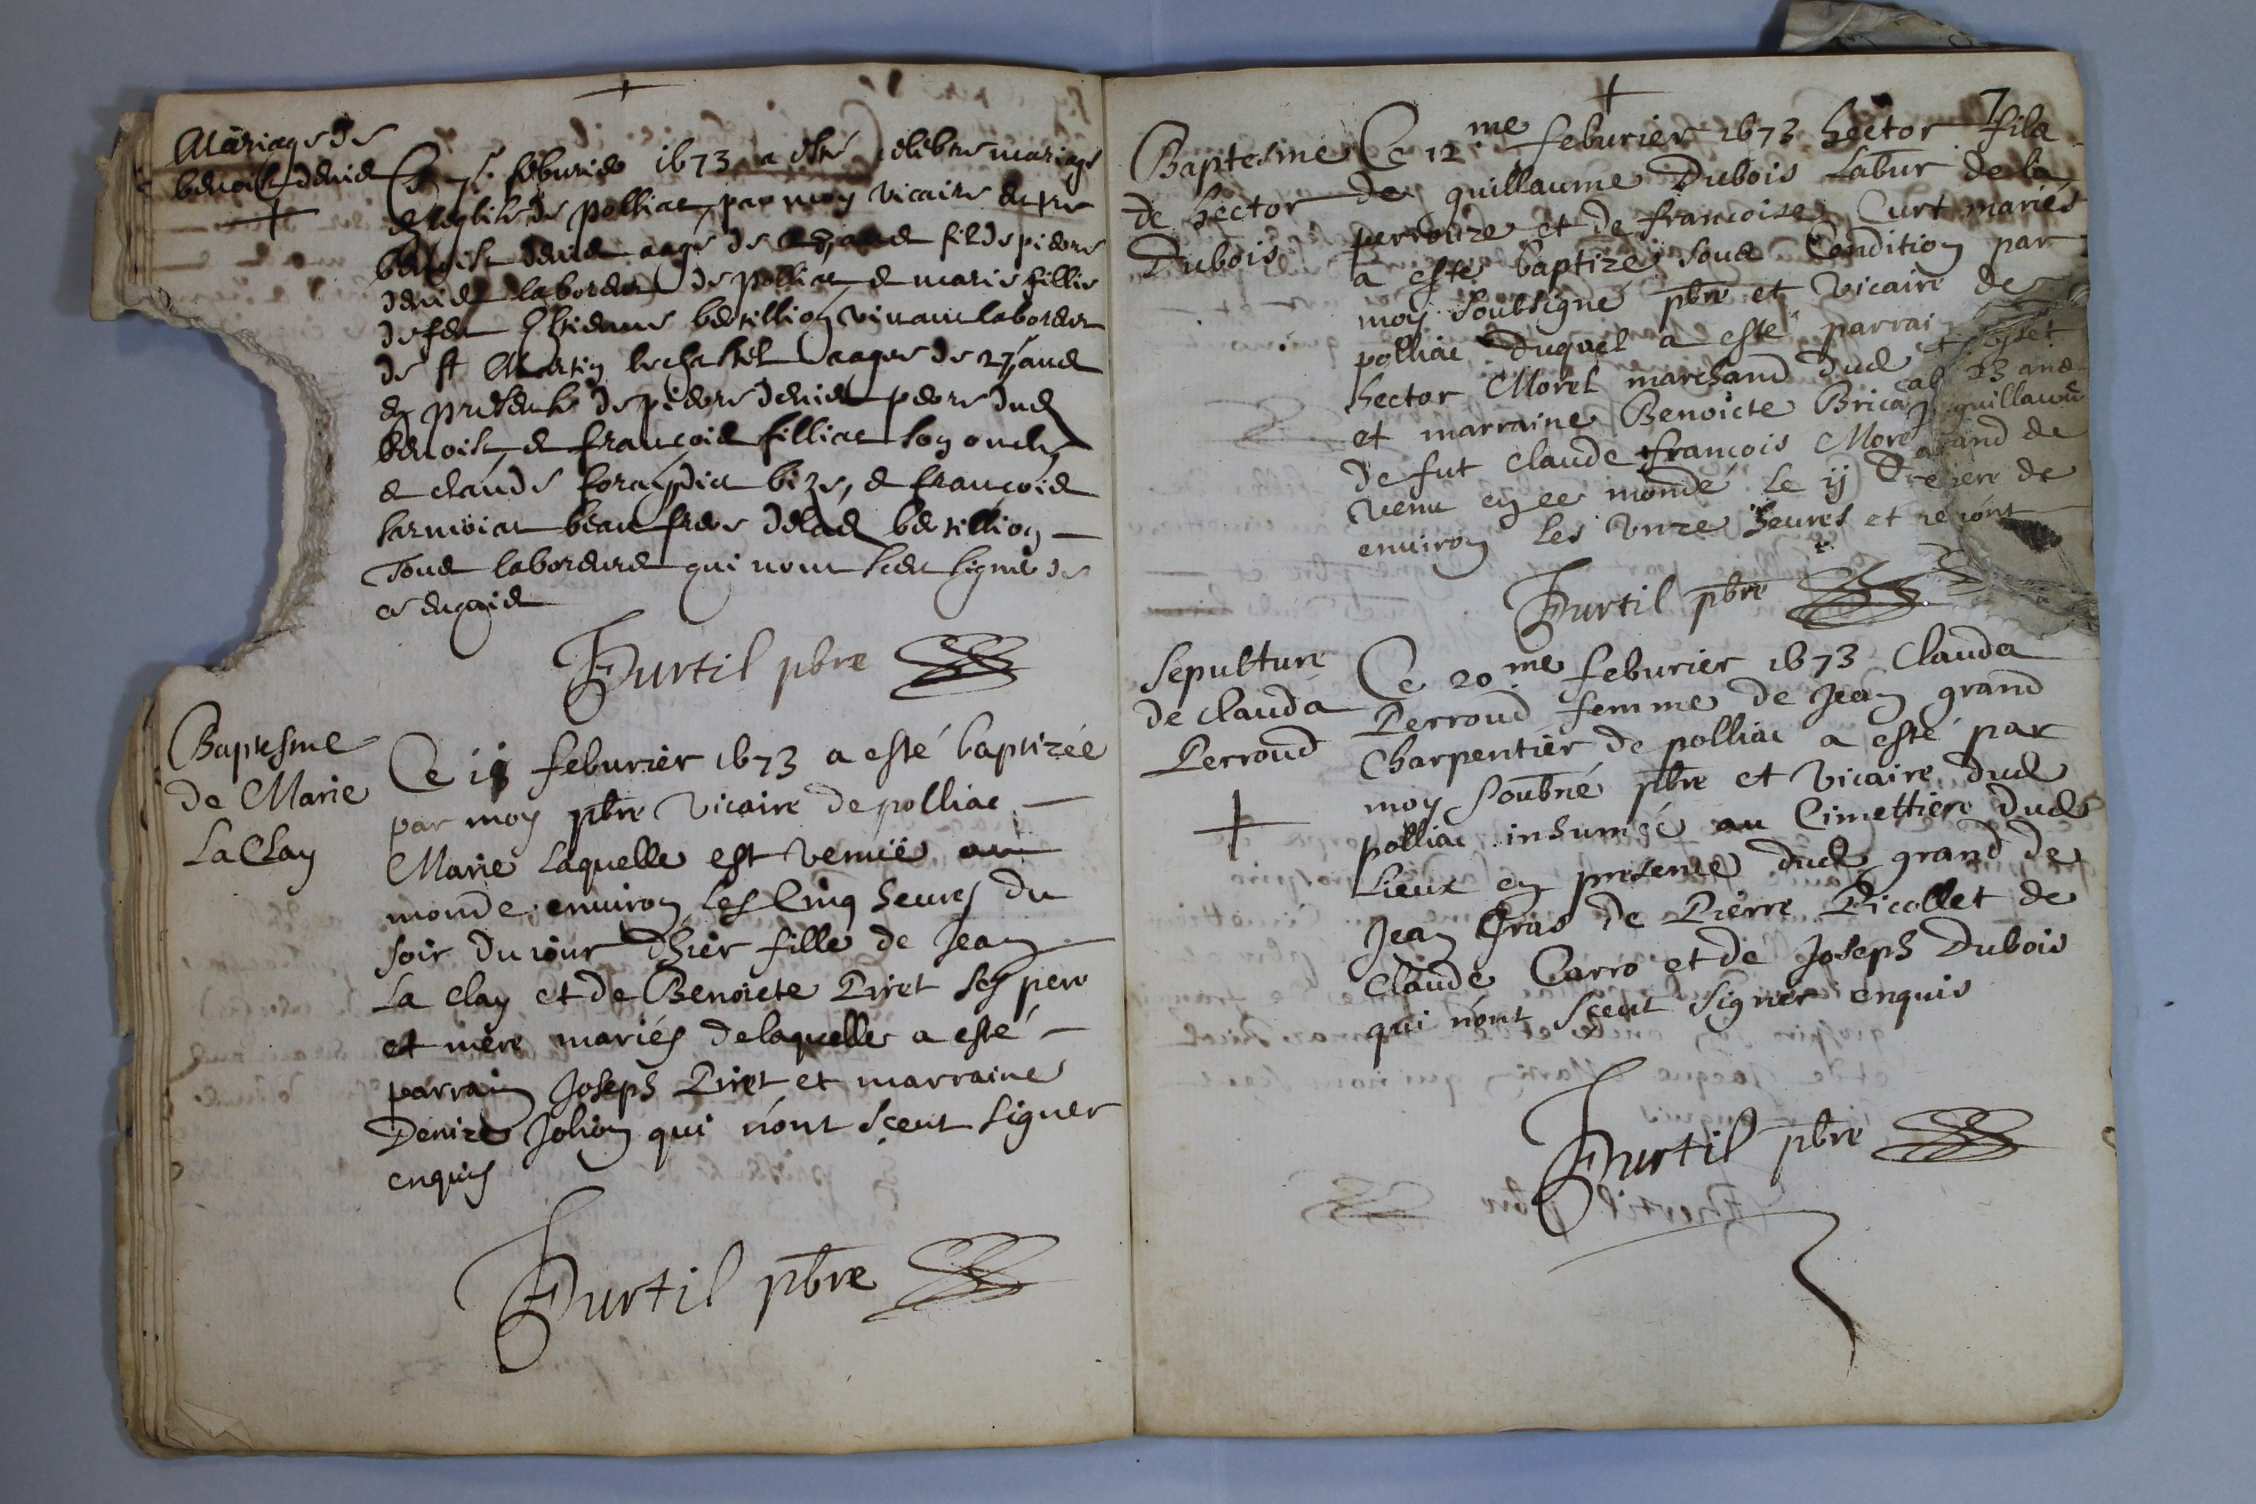 Mariage de
benoist denid
Ce 7e feburier 1673 a esté celebre mariage
en leglise de polliat, par moy vicaire entre
benoist denid aagé de fil de pierre
denid laboreur de polliat & marie fillie
de feu Estienne bertillion vivant laboreur
de st Martin le chastel aagee de 27 ans
en presence de pierre denid pere dud
benoist, & françois filliat son oncle
& claude dict bize, & françois
sarmoiat beau frere de lad bertillion
Tous laboreurs qui nont sceu signé de
ce enquis
Hurtil pbre
Baptesme
de Marie
La Clay
Ce feburier 1673 a esté baptizée
par moy pbre Vicaire de polliac
Marie laquelle est venüe au
monde environ les Cinq heures du
soir du iour dhier fille de Jean
La Clay et de Benoicte Piret ses pere
et mère mariés de laquelle a esté
parrain Joseph Piret et marraine
Denize Johion qui n'ont sceut signer
enquis
Hurtil pbre
7
Baptesme
de hector
Dubois
Ce 12.me feburier 1673 hector fils
de guillaume Dubois Labur de la
perrouze et de francoise Curt mariés
a esté baptizé sous Condition par
moy soubsigné pbre et Vicaire de
polliac duquel a esté parrai
hector Morel marchand dud
et marraine Benoicte Brica
de fut claude francois More guillaum
venu en ce monde le ij
environ les unze heures et
Hurtil pbre
Sepulture
de clauda
Perroud
Ce 20me feburier 1673 Clauda
Perroud femme de Jean grand
Charpentier de polliac a esté par
moy soubné pbre et Vicaire dud
polliac inhumée au Cimettiere dud
Lieux en presence dud grand de
Jean Gras de Pierre Picollet de
Claude Carro et de Joseph Dubois
qui n'ont sceut signer enquis
Hurtil pbre